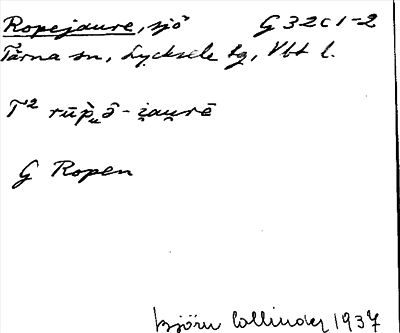 Ropejaure, sjö G 32 c 1-2
Tärna sn, Lycksele lg, Vbt l.
T² rūp̀ᵤô - i̯au̯rē
G Ropen
Björn Collinder 1937